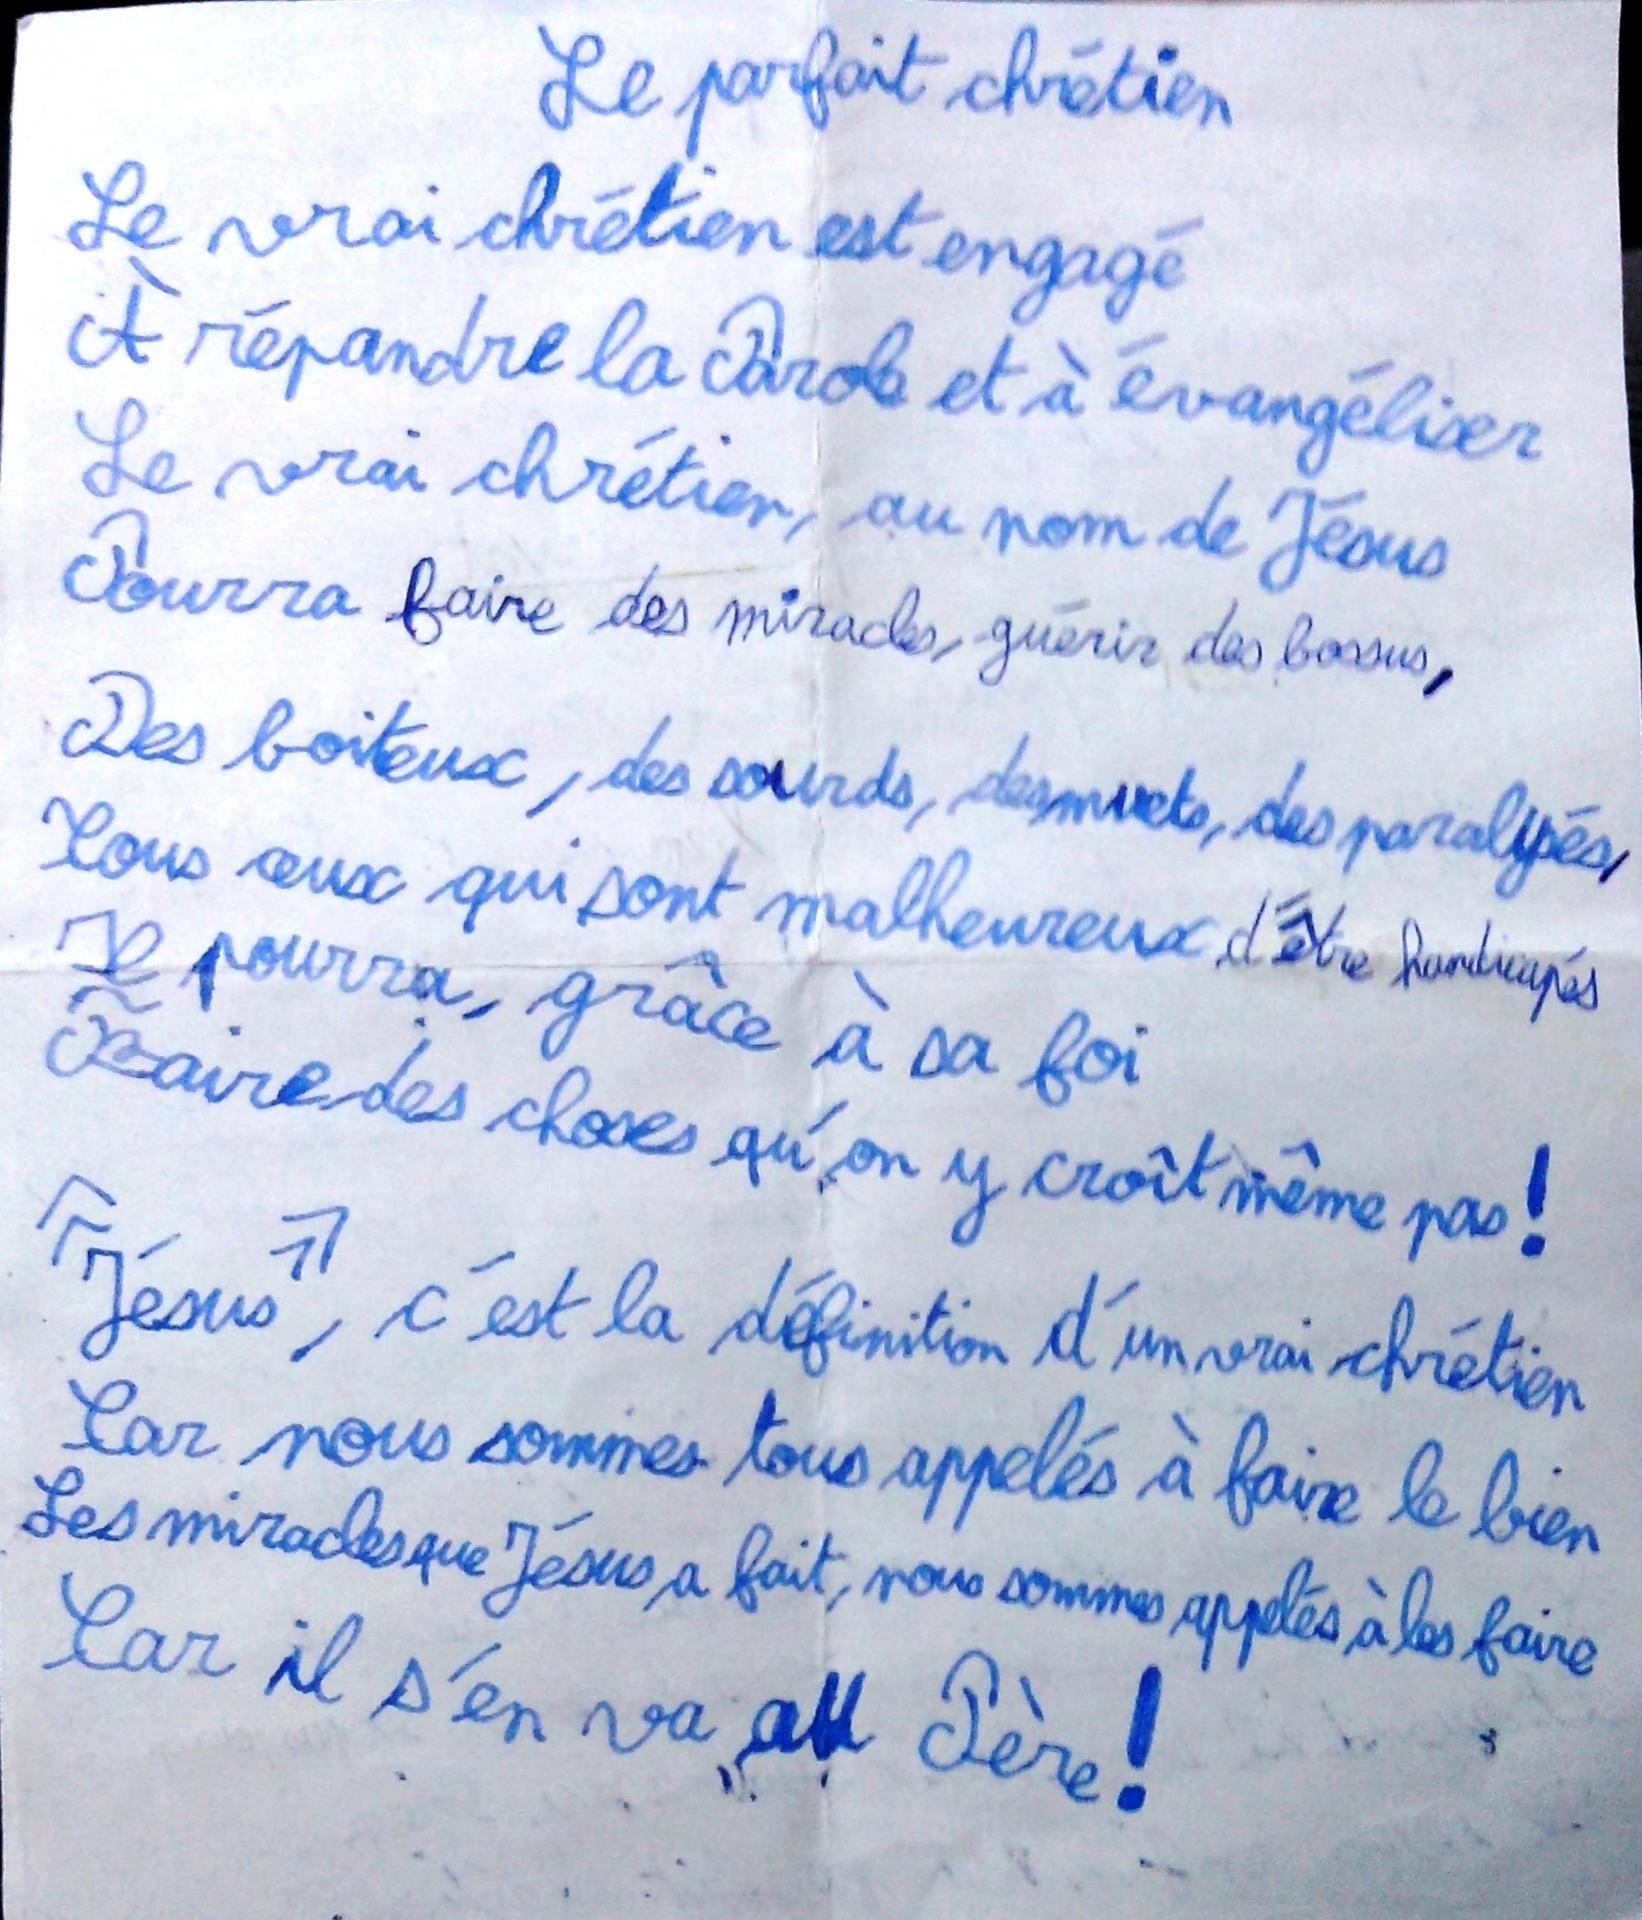 Le parfait chrétien
Le vrai chrétien est engagé
À répandre la Parole et à évangéliser
Le vrai chrétien, au nom de Jésus
Pourra faire des miracles, guérir des bossus,
Des boiteux, des sourds, des muets, des paralysés,
Tous ceux qui sont malheureux d'être handicapés
Il pourra, grâce à sa foi
Faire des choses qu'on y croît même pas !
"Jésus", c'est la définition d'un vrai chrétien
Car nous sommes tous appelés à faire le bien
Les miracles que Jésus a fait, nous sommes appelés à les faire
Car il s'en va au Père !